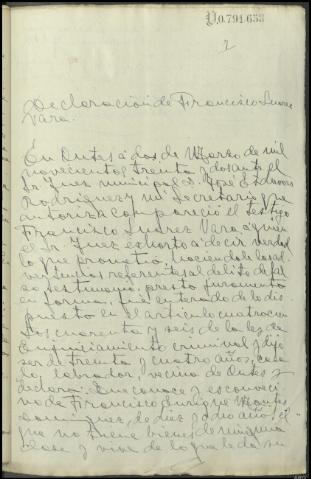 D.0.791.633
2
Declaracion de Francisco Suarez
Vara.
En Dutes a dos de Marzo de mil
novecientos treinta y dos ante el
Sr Juez municipal D. José Estevez
Rodriguez y mi Secretario que
autoriza comparecio el testigo
Francisco Suarez Vara a quien
el Sr Juez exhorto a decir verdad
lo que prometio, haciendole
referentes al delito de fal
so testimonio, presto juramento
en forma, fue enterado de lo dis
puesto en el articulo cuatrocien
tos cuarenta y seis de la ley de
Enjuiciamiento criminal y dijo
ser de treinta y cuatro años, casa
do, labrador, vecino de Dutes y
declara: Que conoce y es convecino
de Francisco Enrique
Dominguez, de diez y ocho años,
que no tiene bienes de ninguna
clase y vive de lo que le da su